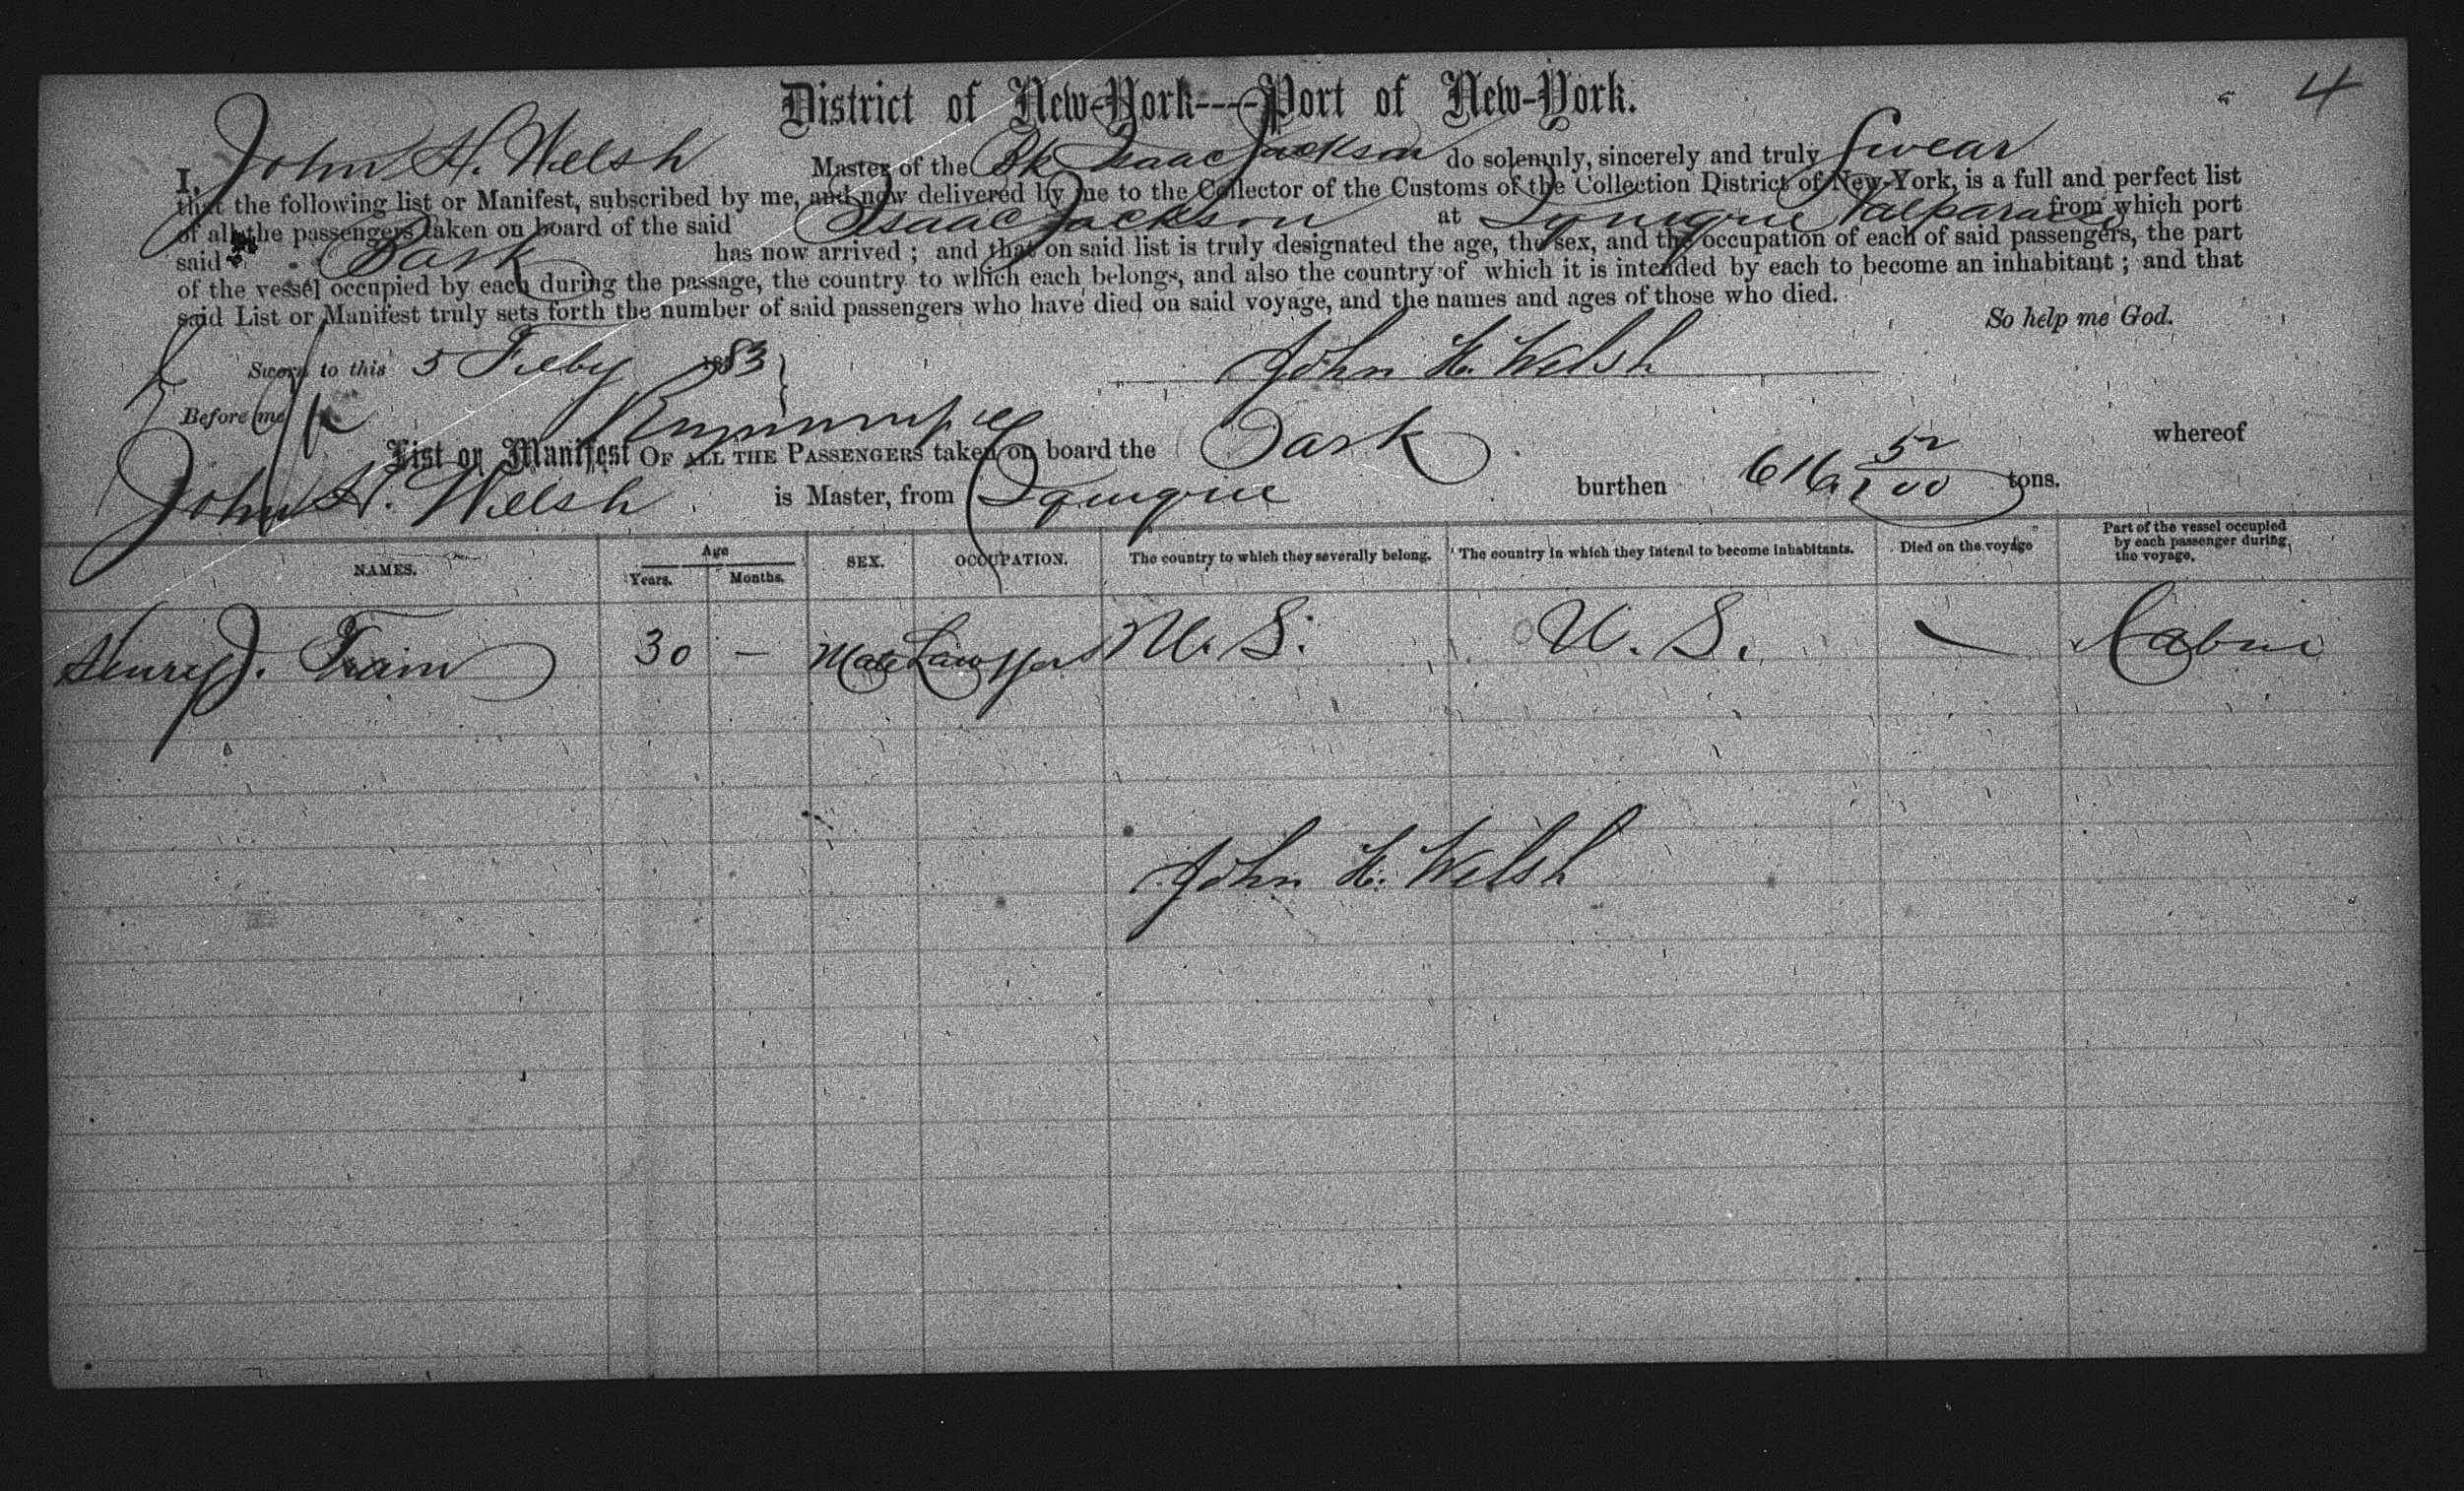 4
District of New-York----Port of New-York.
I, John H. Welsh Master of the Bk Isaac Jackson do solemnly, sincerely and truly Swear
that the following list or Manifest, subscribed by me, and now delivered by me to the Collector of the Customs of the Collection District of New-York, is a full and perfect list
of all the passengers taken on board of the said Isaac Jackson at Iquique Valparaiso from which port
said Bark has now arrived ; and that on said list is truly designated the age, the sex, and the occupation of each of said passengers, the part
of the vessel occupied by each during the passage, the country to which each belongs, and also the country of which it is intended by each to become an inhabitant ; and that
said List or Manifest truly sets forth the number of said passengers who have died on said voyage, and the names and ages of those who died.
So help me God.
Sworn to this 5 Feby 1883 John H. Welsh
Before me
List or Manifest OF ALL THE PASSENGERS taken on board the Bark burthen 616 52/100 tons. whereof
John H. Welsh is Master, from Iquique
NAMES. Age Years. Months. SEX. OCCUPATION. The country to which they severally belong. The country in which they intend to become inhabitants. Died on the voyage Part of the vessel occupied by each passenger during the voyage.
Henry J. Train 30 — Male Lawyer U. S. U. S. — Cabin
John H. Welsh